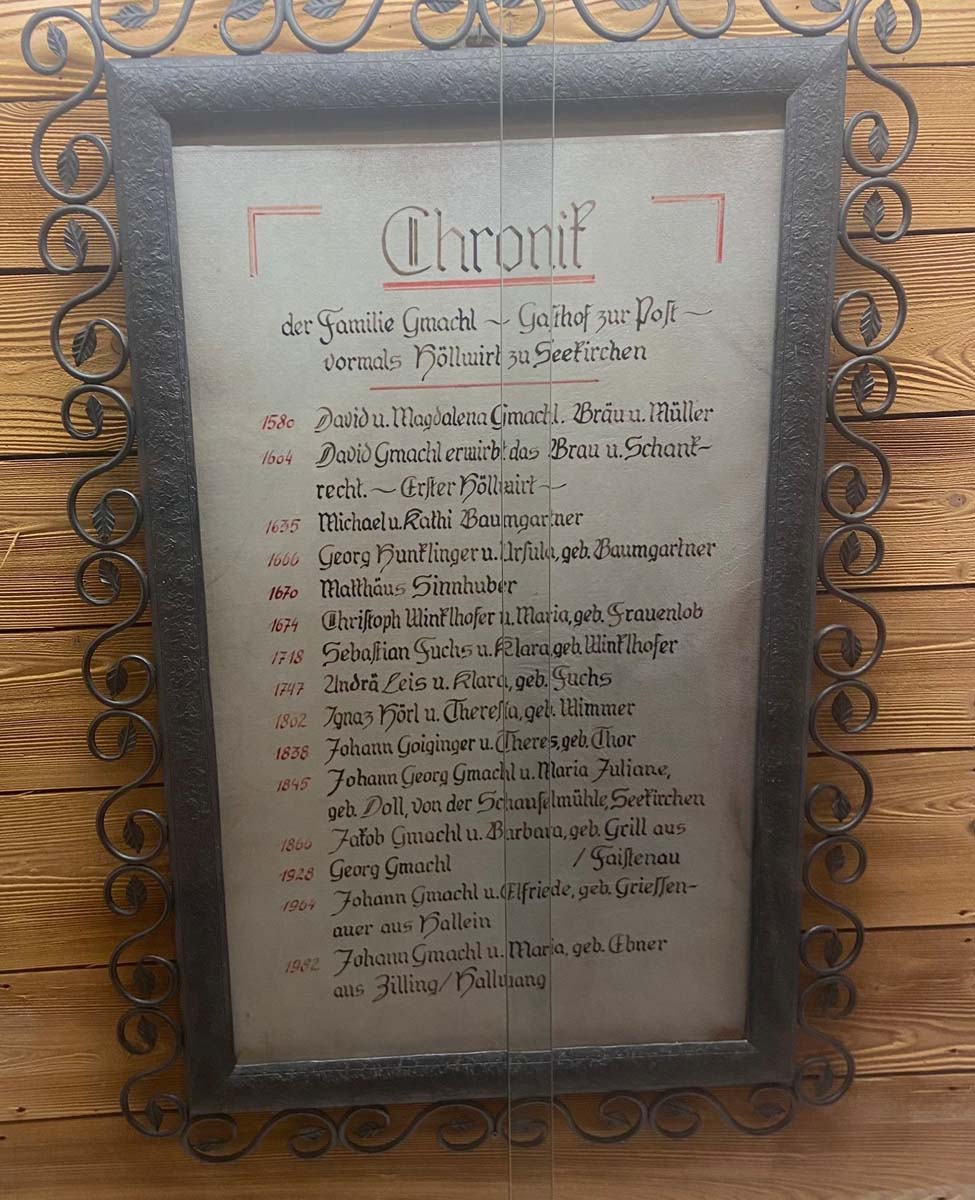 Chronik
der Familie Gmachl ~ Gasthof zur Post ~
vormals Höllwirt zu Seekirchen
1580 David u. Magdalena Gmachl. Bräu u. Müller
1604 David Gmachl erwirbt das Brau u. Schank-
recht. ~ Erster Höllwirt ~
1635 Michael u. Kathi Baumgartner
1666 Georg Hunklinger u. Ursula, geb. Baumgartner
1670 Matthäus Sinnhuber
1674 Christoph Winklhofer u. Maria, geb. Frauenlob
1718 Sebastian Fuchs u. Klara, geb. Winklhofer
1747 Andrä Leis u. Klara, geb. Fuchs
1802 Ignaz Hörl u. Theresia, geb. Wimmer
1838 Johann Goiginger u. Theres, geb. Thor
1845 Johann Georg Gmachl u. Maria Juliane,
geb. Doll, von der Schaufelmühle, Seekirchen
1860 Jakob Gmachl u. Barbara, geb. Grill aus
1928 Georg Gmachl / Faistenau
1964 Johann Gmachl u. Elfriede, geb. Griessen-
auer aus Hallein
1982 Johann Gmachl u. Maria, geb. Ebner
aus Zilling/Hallwang